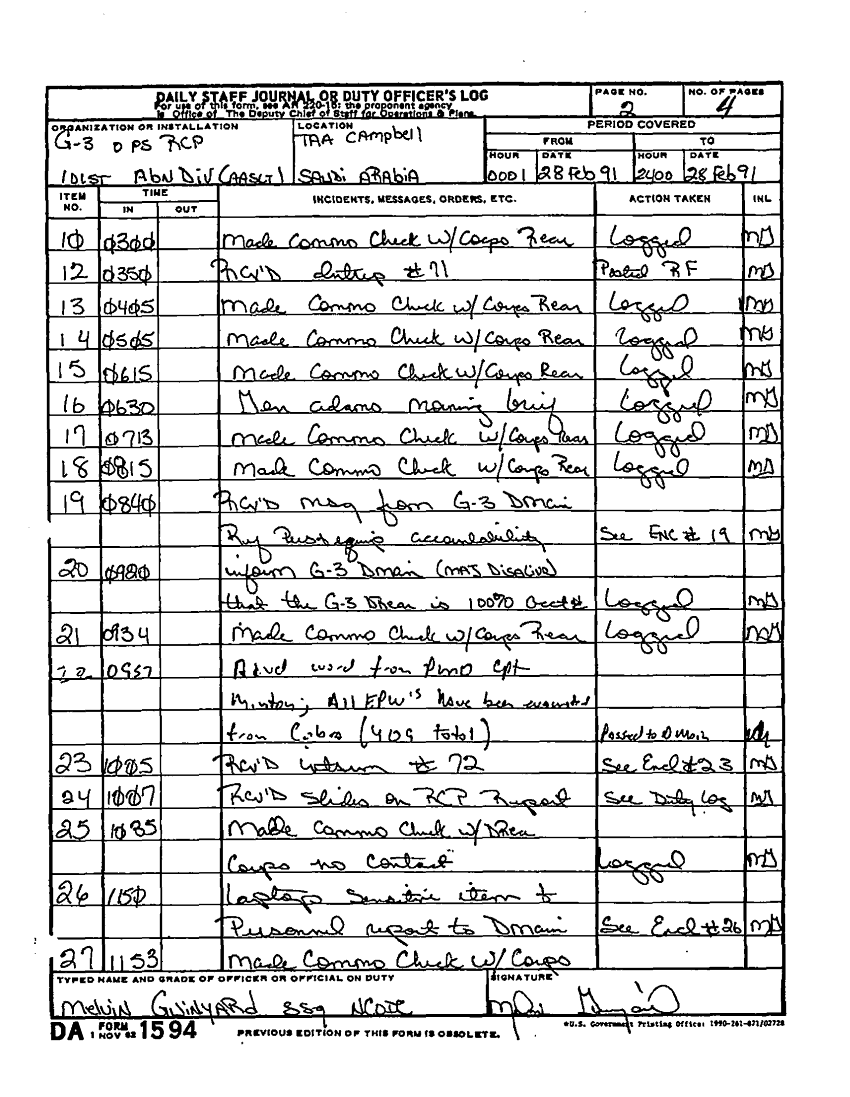 DAILY STAFF JOURNAL OR DUTY OFFICER'S LOG
For use of this form, see AR 220-15; the proponent agency
is Office of The Deputy Chief of Staff for Operations & Plans.
PAGE NO.
2
NO. OF PAGES
4
ORGANIZATION OR INSTALLATION
G-3 OPS RCP
101st Abn Div (AASLT)
LOCATION
TAA Campbell
SAUDI ARABIA
PERIOD COVERED
FROM TO
HOUR DATE HOUR DATE
0001 28 Feb 91 2400 28 Feb 91
ITEM NO. TIME INCIDENTS, MESSAGES, ORDERS, ETC. ACTION TAKEN INL
IN OUT
10 0300 Made Commo Check w/Corps Rear Logged MG
12 0350 RCV'D #71 Posted RF MG
13 0405 Made Commo Check w/Corps Rear Logged MG
14 0505 Made Commo Check w/Corps Rear Logged MG
15 0615 Made Commo Check w/Corps Rear Logged MG
16 0630 morning brief Logged MG
17 0713 Made Commo Check w/Corps Rear Logged MG
18 0815 Made Commo Check w/Corps Rear Logged MG
19 0840 RCV'D msg from G-3 Dmain
equip accountability See ENC # 19 MG
20 0920 inform G-3 Dmain (MAJ
that the G-3 DRear is 100% Logged MG
21 0934 Made Commo Check w/Corps Rear Logged MG
22 0957 word from PMO Cpt
All EPW's have been evacuated
from Cobra (total) Passed to DMain
23 1005 RCV'D # 72 See Encl #23 MG
24 1007 RCV'D Slides on RCP Report See Duty Log MG
25 1035 Made Commo Check w/DRear
Corps no Contact Logged MG
26 1150 Laptop Sensitive item &
Personnel report to Dmain See Encl #26 MG
27 1153 Made Commo Check w/Corps
TYPED NAME AND GRADE OF OFFICER OR OFFICIAL ON DUTY
Melvin GWINYARD SSG NCOIC
SIGNATURE
DA FORM 1 NOV 62 1594
PREVIOUS EDITION OF THIS FORM IS OBSOLETE.
*U.S. Government Printing Office: 1990-261-871/02728